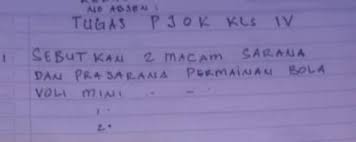 NO ABSEN :
TUGAS PJOK KLS IV
1 SEBUTKAN 2 MACAM SARANA
DAN PRASARANA PERMAINAN BOLA
VOLI MINI . - .
1.
2.